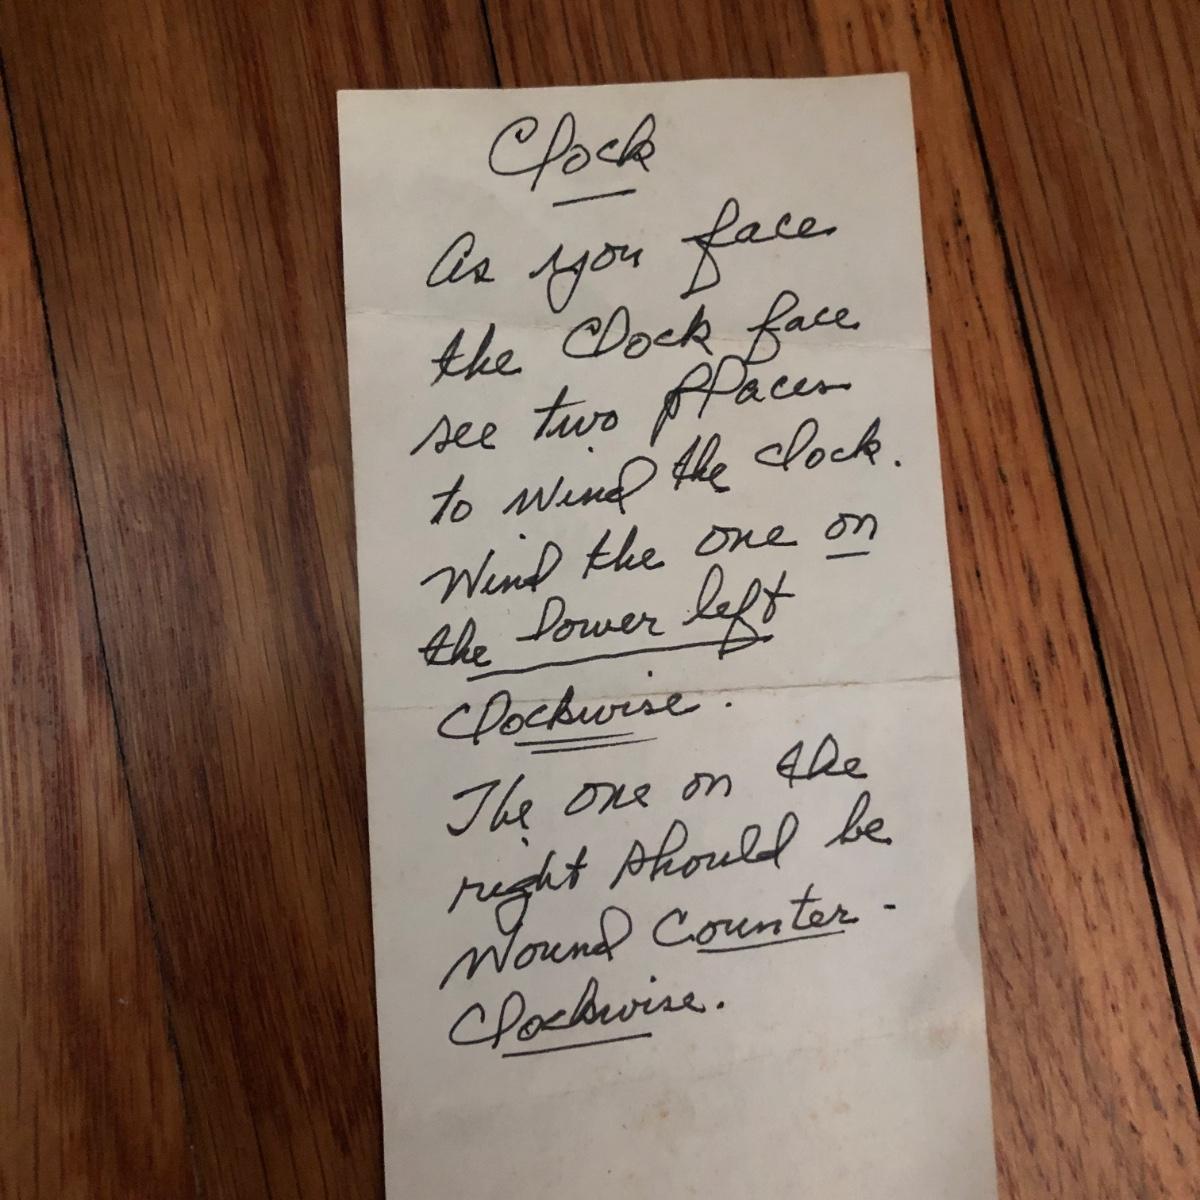 Clock
As you face
the Clock face
see two places
to wind the clock.
Wind the one on
the lower left
Clockwise.
The one on the
right should be
Wound Counter -
Clockwise.